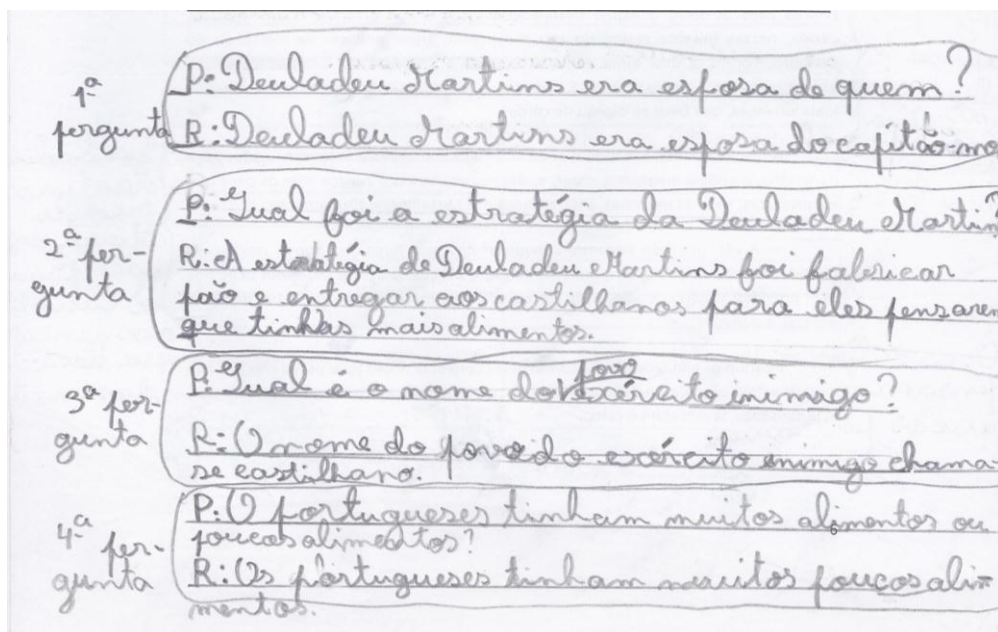 1ª
pergunta
P: Deuladeu Martins era esposa de quem?
R: Deuladeu Martins era esposa do capitão-mo
2ª per-
gunta
P: Qual foi a estratégia da Deuladeu Martin?
R: A estratégia de Deuladeu Martins foi fabricar
pão e entregar aos castilhanos para eles pensarem
que tinhas mais alimentos.
3ª per-
gunta
povo
P: Qual é o nome do exército inimigo?
R: O nome do povo do exército inimigo chama-
se castilhano.
4ª per-
gunta
P: O portugueses tinham muitos alimentos ou
poucos alimentos?
R: Os portugueses tinham muitos poucos ali-
mentos.